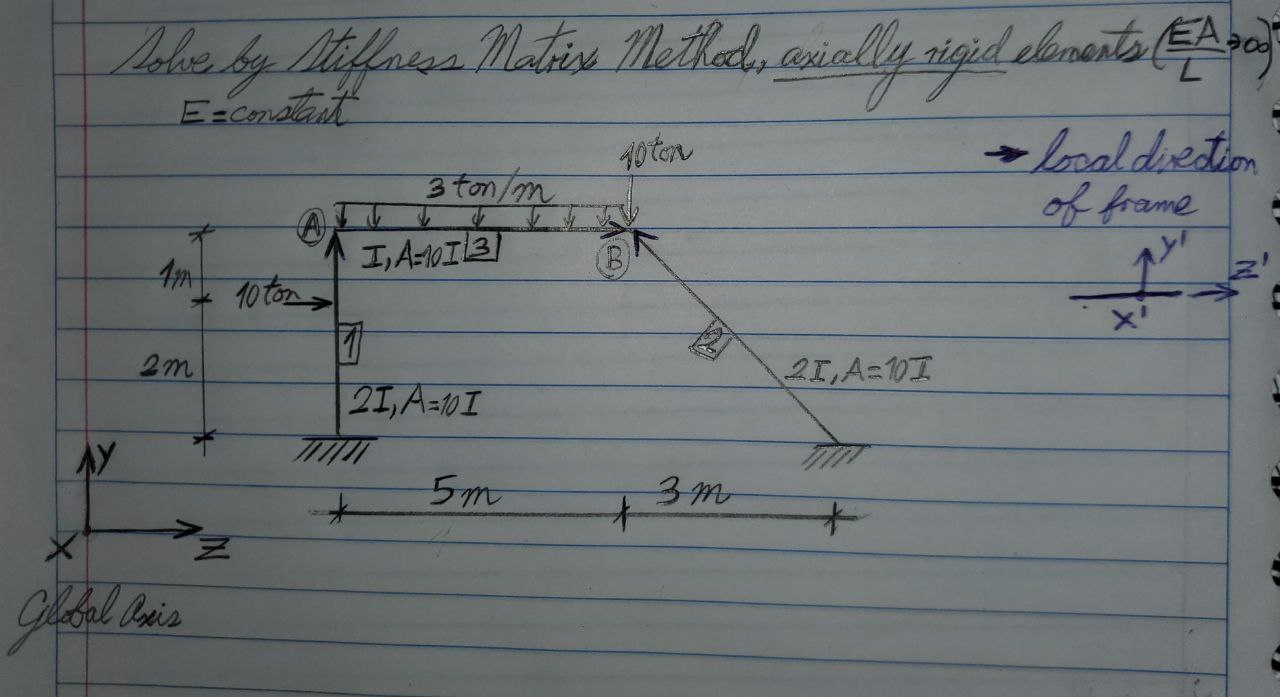 Solve by Stiffness Matrix Method, axially rigid elements (EA/L→∞)
E=constant
→ local direction
of frame
10ton
3 ton/m
A
I, A=10I 3
B
1m
10ton
1
2
2m
2I, A=10I
2I, A=10I
Y'
Z'
X'
Y
X
Z
5m
3m
Global Axis